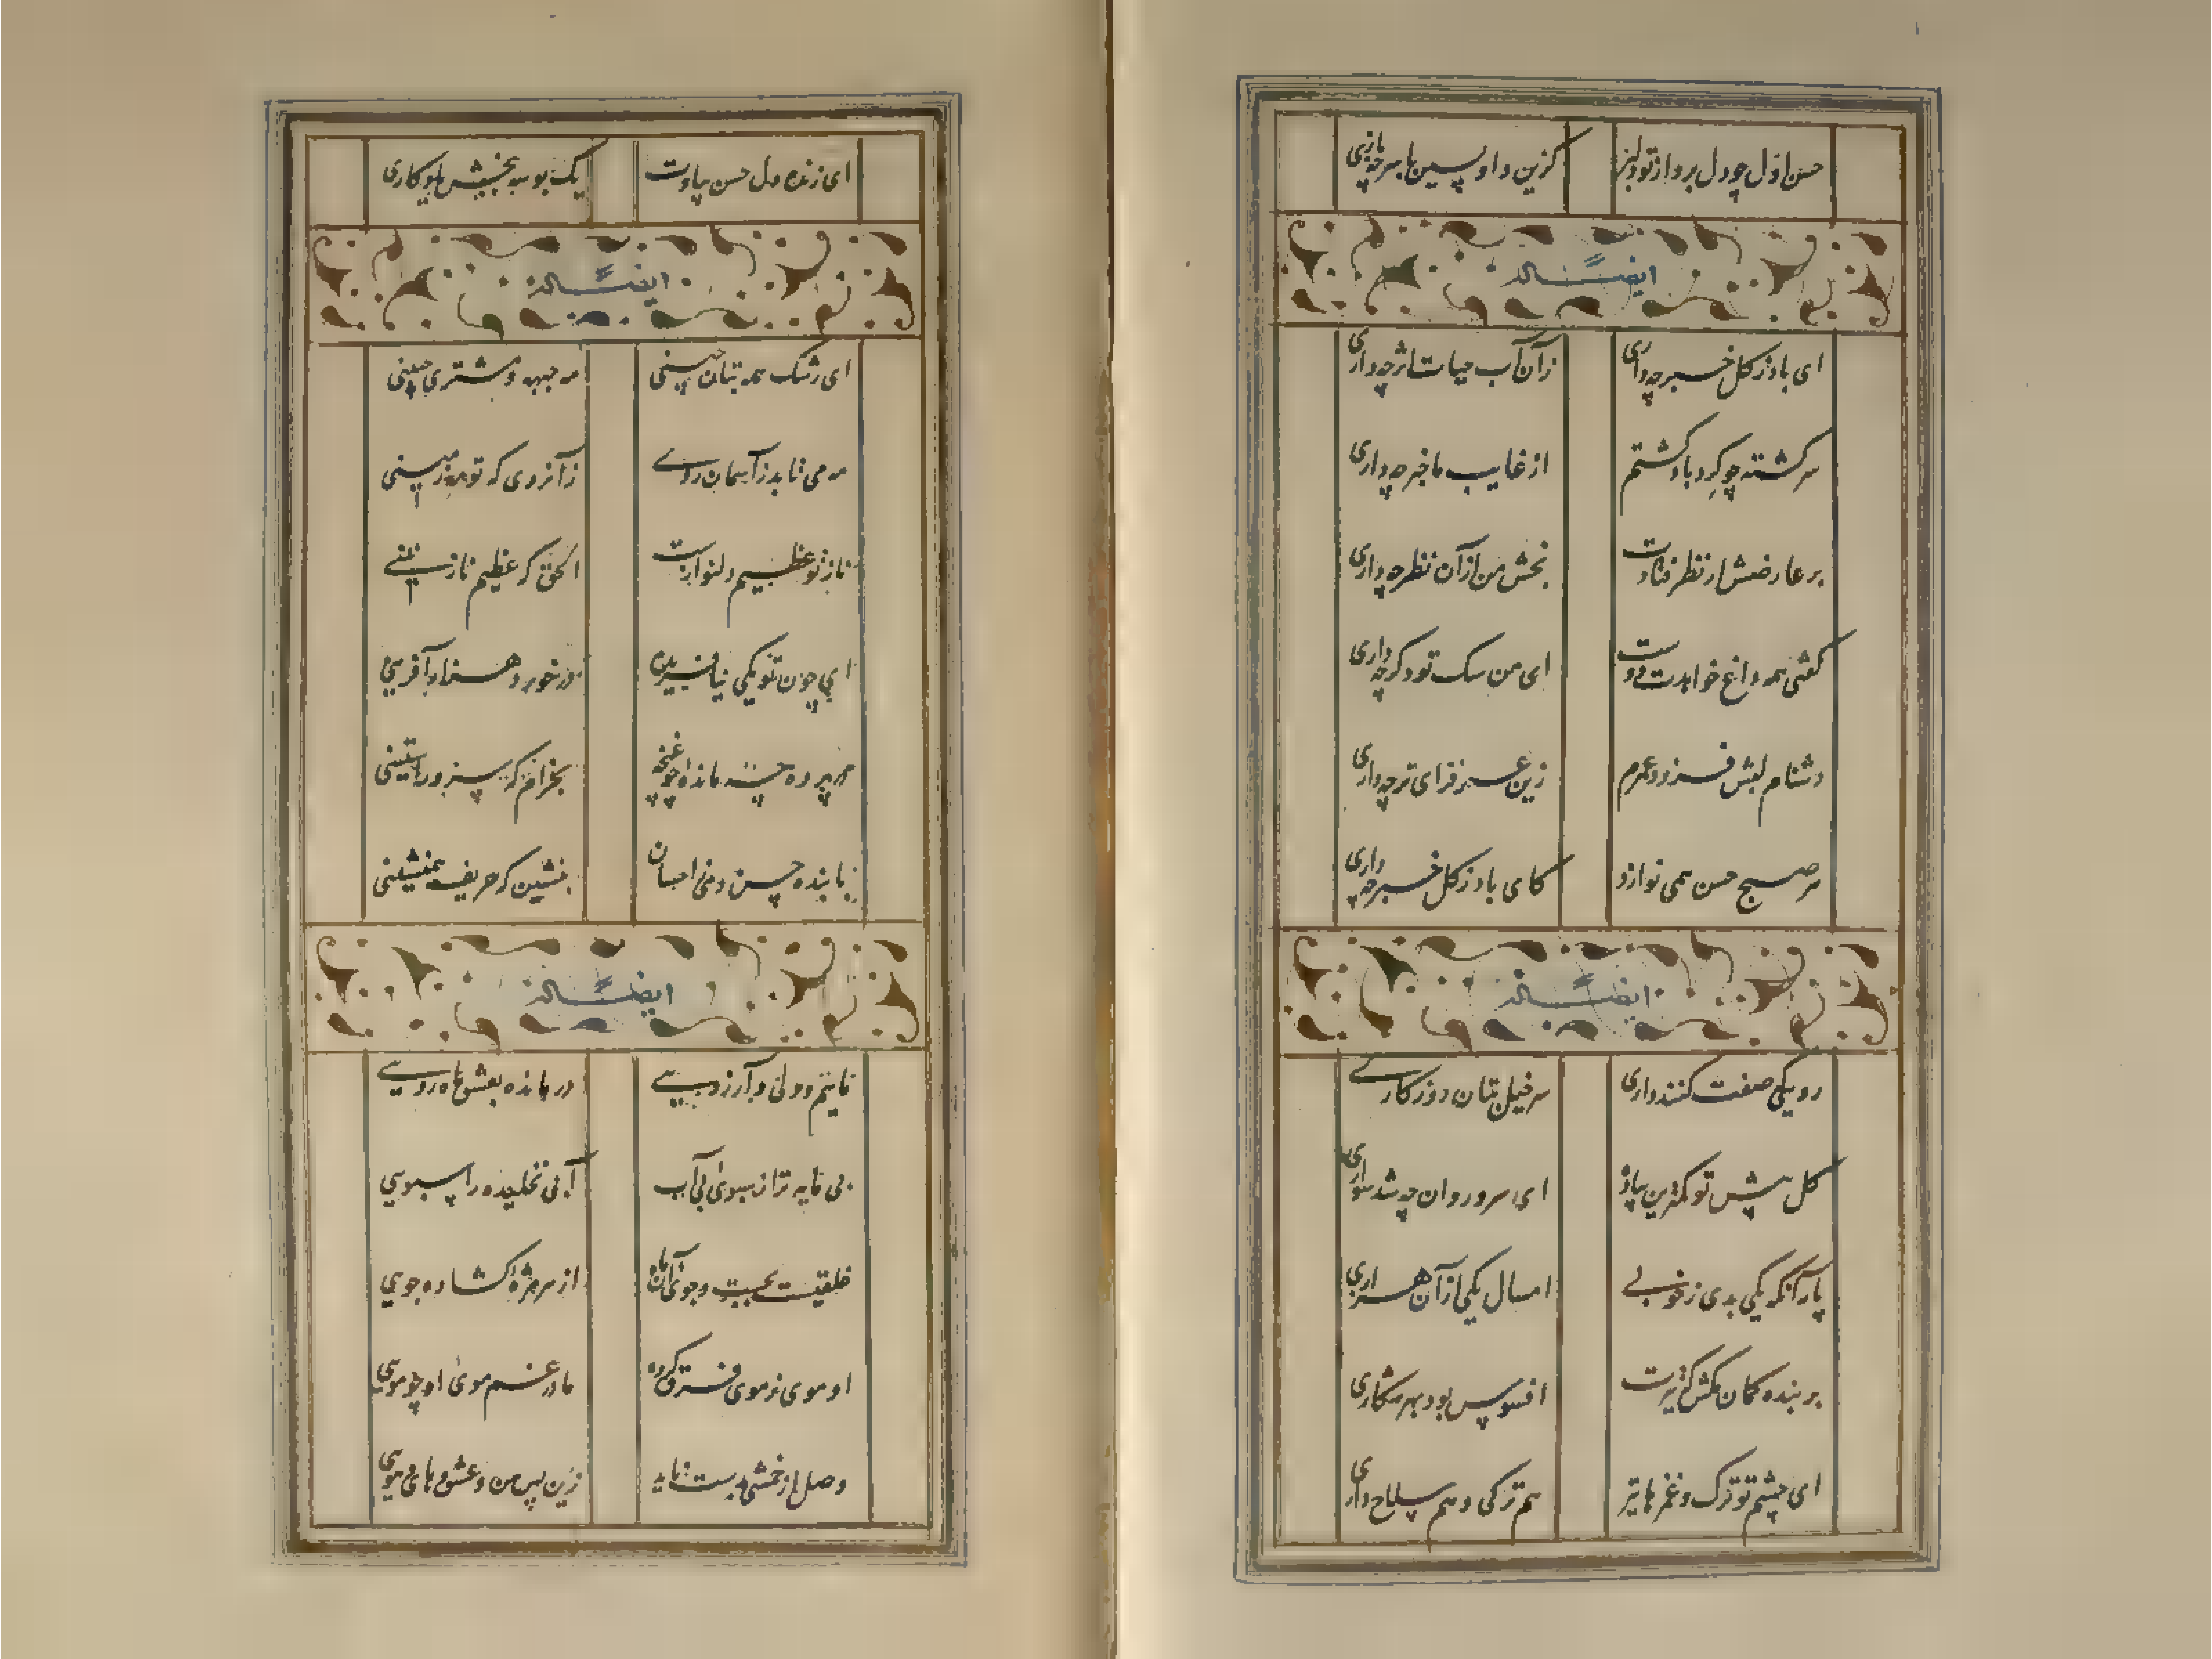 حسن اول چو دل برد از تو دلبر
کزین داو پسین هم چه بازی
ایضاً له
ای باد ز گل خبر چه داری
زان آب حیات اثر چه داری
سرگشته چو گردباد گشتم
از غایب ما خبر چه داری
بر عارضش ار نظر فتادت
بخش من از آن نظر چه داری
گفتی همه داغ خواهمت
ای من سگ تو دگر چه داری
دشنام لبش فزود عمرم
زین عمر فزای تر چه داری
هر صبح حسن همی نوازد
کای باد ز گل خبر چه داری
ایضاً له
رو یکی صفت کنند داری
سر خیل بتان روزگاری
گل پیش تو کمترین پیاده
ای سرو روان چه شد سواری
پار آنکه یکی بدی ز خوبی
امسال یکی از آن هزاری
بر بنده کمان مکش که تیرت
افسوس بود بهر شکاری
ای چشم تو ترک و غمزها تیر
هم ترکی و هم سلاح داری
ای زنده دل حسن بیادت
یک بوسه ببخشش یا کاری
ایضاً له
ای رشک همه بتان چینی
مه جبهه و مشتری جبینی
مه می ناید ز آسمان روی
زانروی که تو مه زمینی
ناز تو عظیم دلنوازست
الحق که عظیم نازنینی
ای چون تو یکی نیافریده
در خورد هزار آفرینی
در پرده چه مانده چو غنچه
بخرام که سبز و راستینی
با بنده حسن ز منی احسان
بنشین که حریف همنشینی
ایضاً له
مائیم و دلی و آرزویی
درمانده بعشق ماه رویی
بی مایه تر از سبوی بی آب
آبی نخلیده را سبویی
خلقیست بجست و جوی آن ماه
از هر مژه گشاده جویی
او موی ز موی فرق کرده
ما در غم موی او چو مویی
وصل از خمشی بدست ناید
زین پس من و عشق و های و هویی